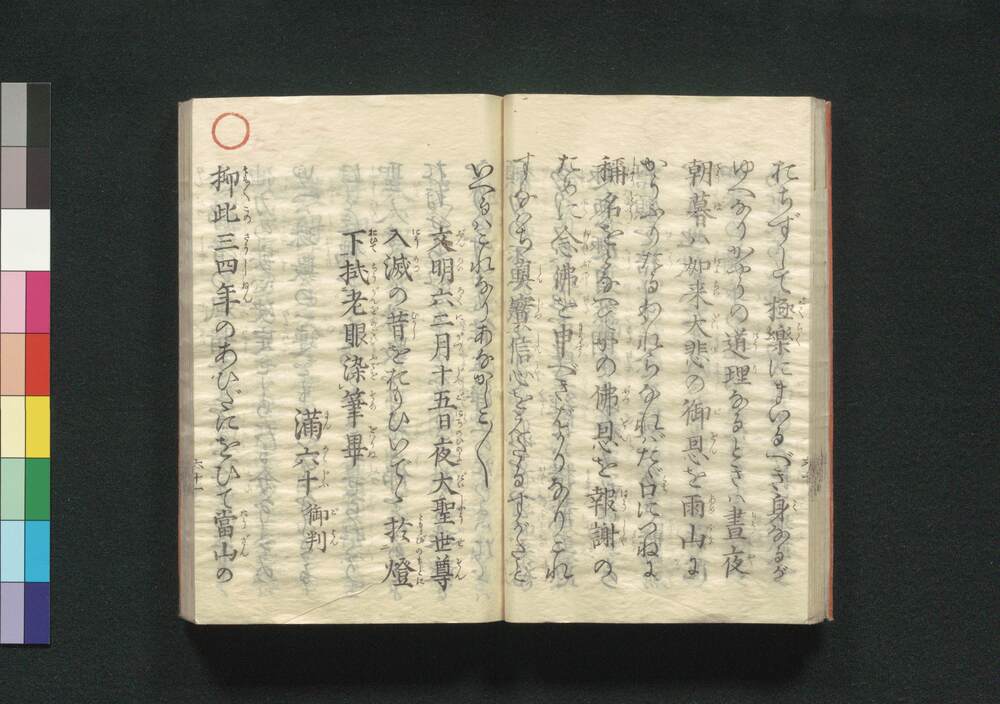 たちずして極樂にまいるべき身なるが
ゆへなりかやうの道理なるときは晝夜
朝暮は如来大悲の御恩を雨山に
かうふりたるわれらなればたゞ口につねに
稱名をとなへてかの佛恩を報謝の
ために念佛を申べきばかりなりこれ
すなはち真實信心をえたるすがたと
いへるはこれなりあなかしこ〳〵
文明六二月十五日夜大聖世尊
入滅の昔をおもひいでゝ於燈
下拭老眼染筆畢
滿六十御判
抑此三四年のあひだにをひて當山の
六十一